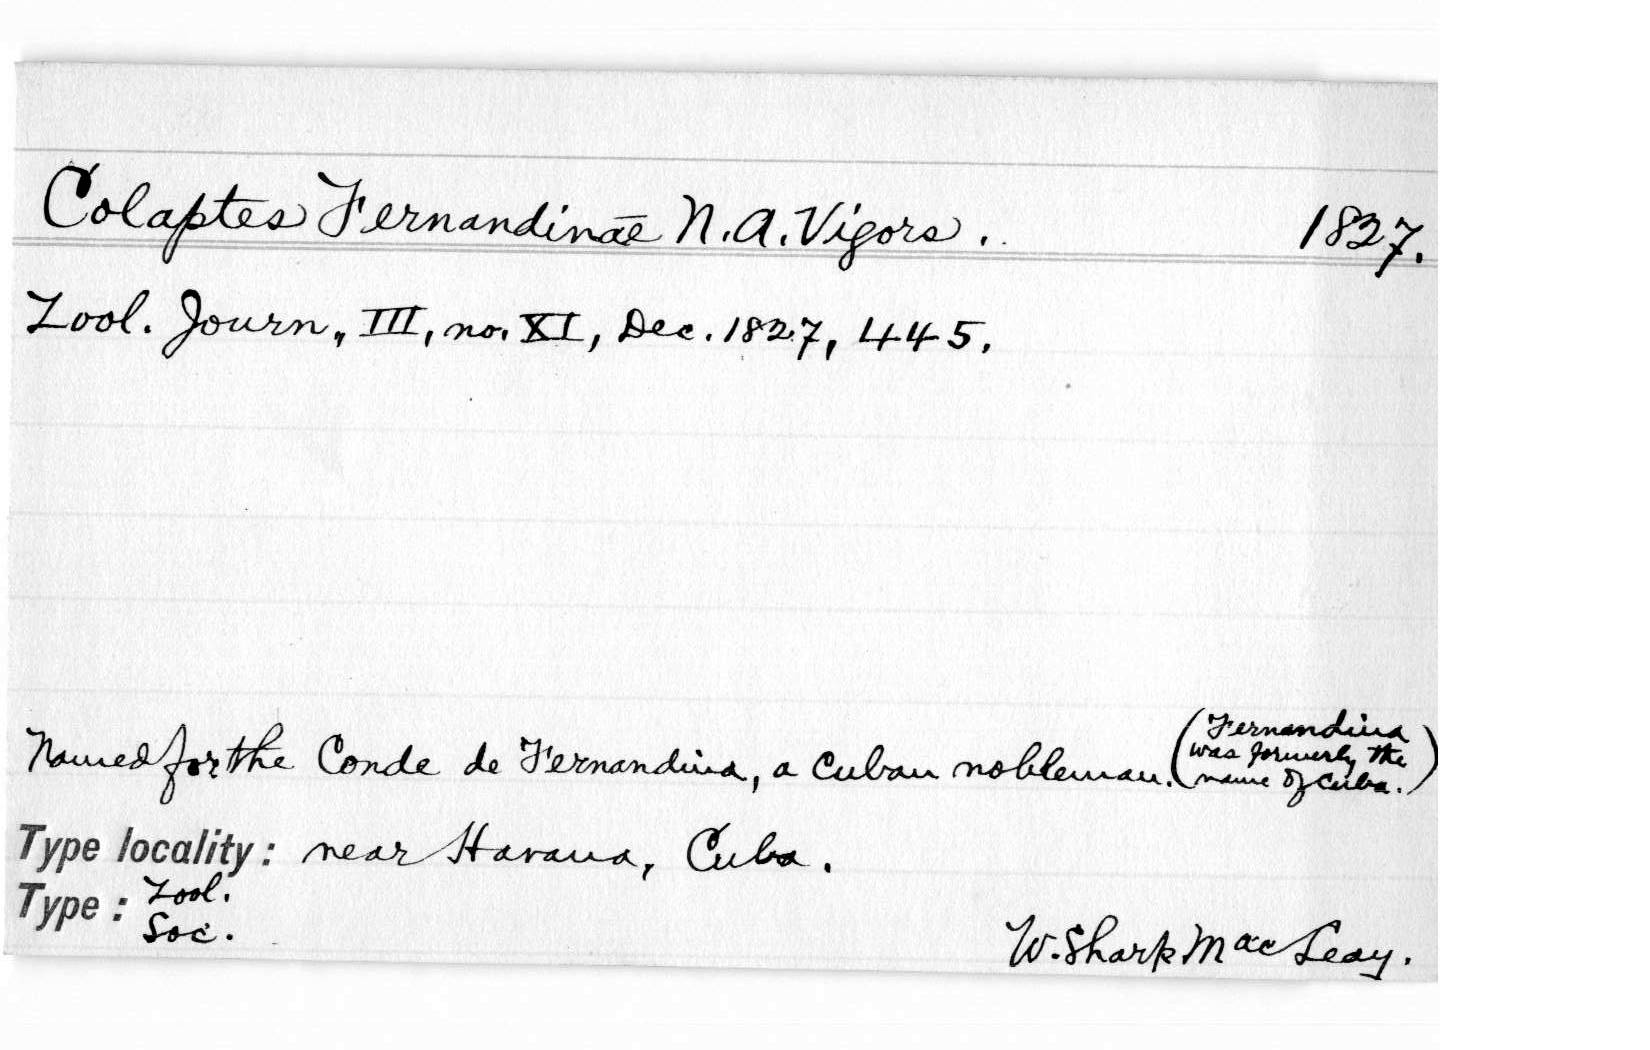 Colaptes Fernandinae N.A. Vigors. 1827.
Zool. Journ., III, no. XI, Dec. 1827, 445.
Named for the Conde de Fernandina, a Cuban nobleman. (Fernandina
was formerly the
name of Cuba.)
Type locality: near Havana, Cuba.
Type: Zool.
Soc.
W. Shark MacLeay.